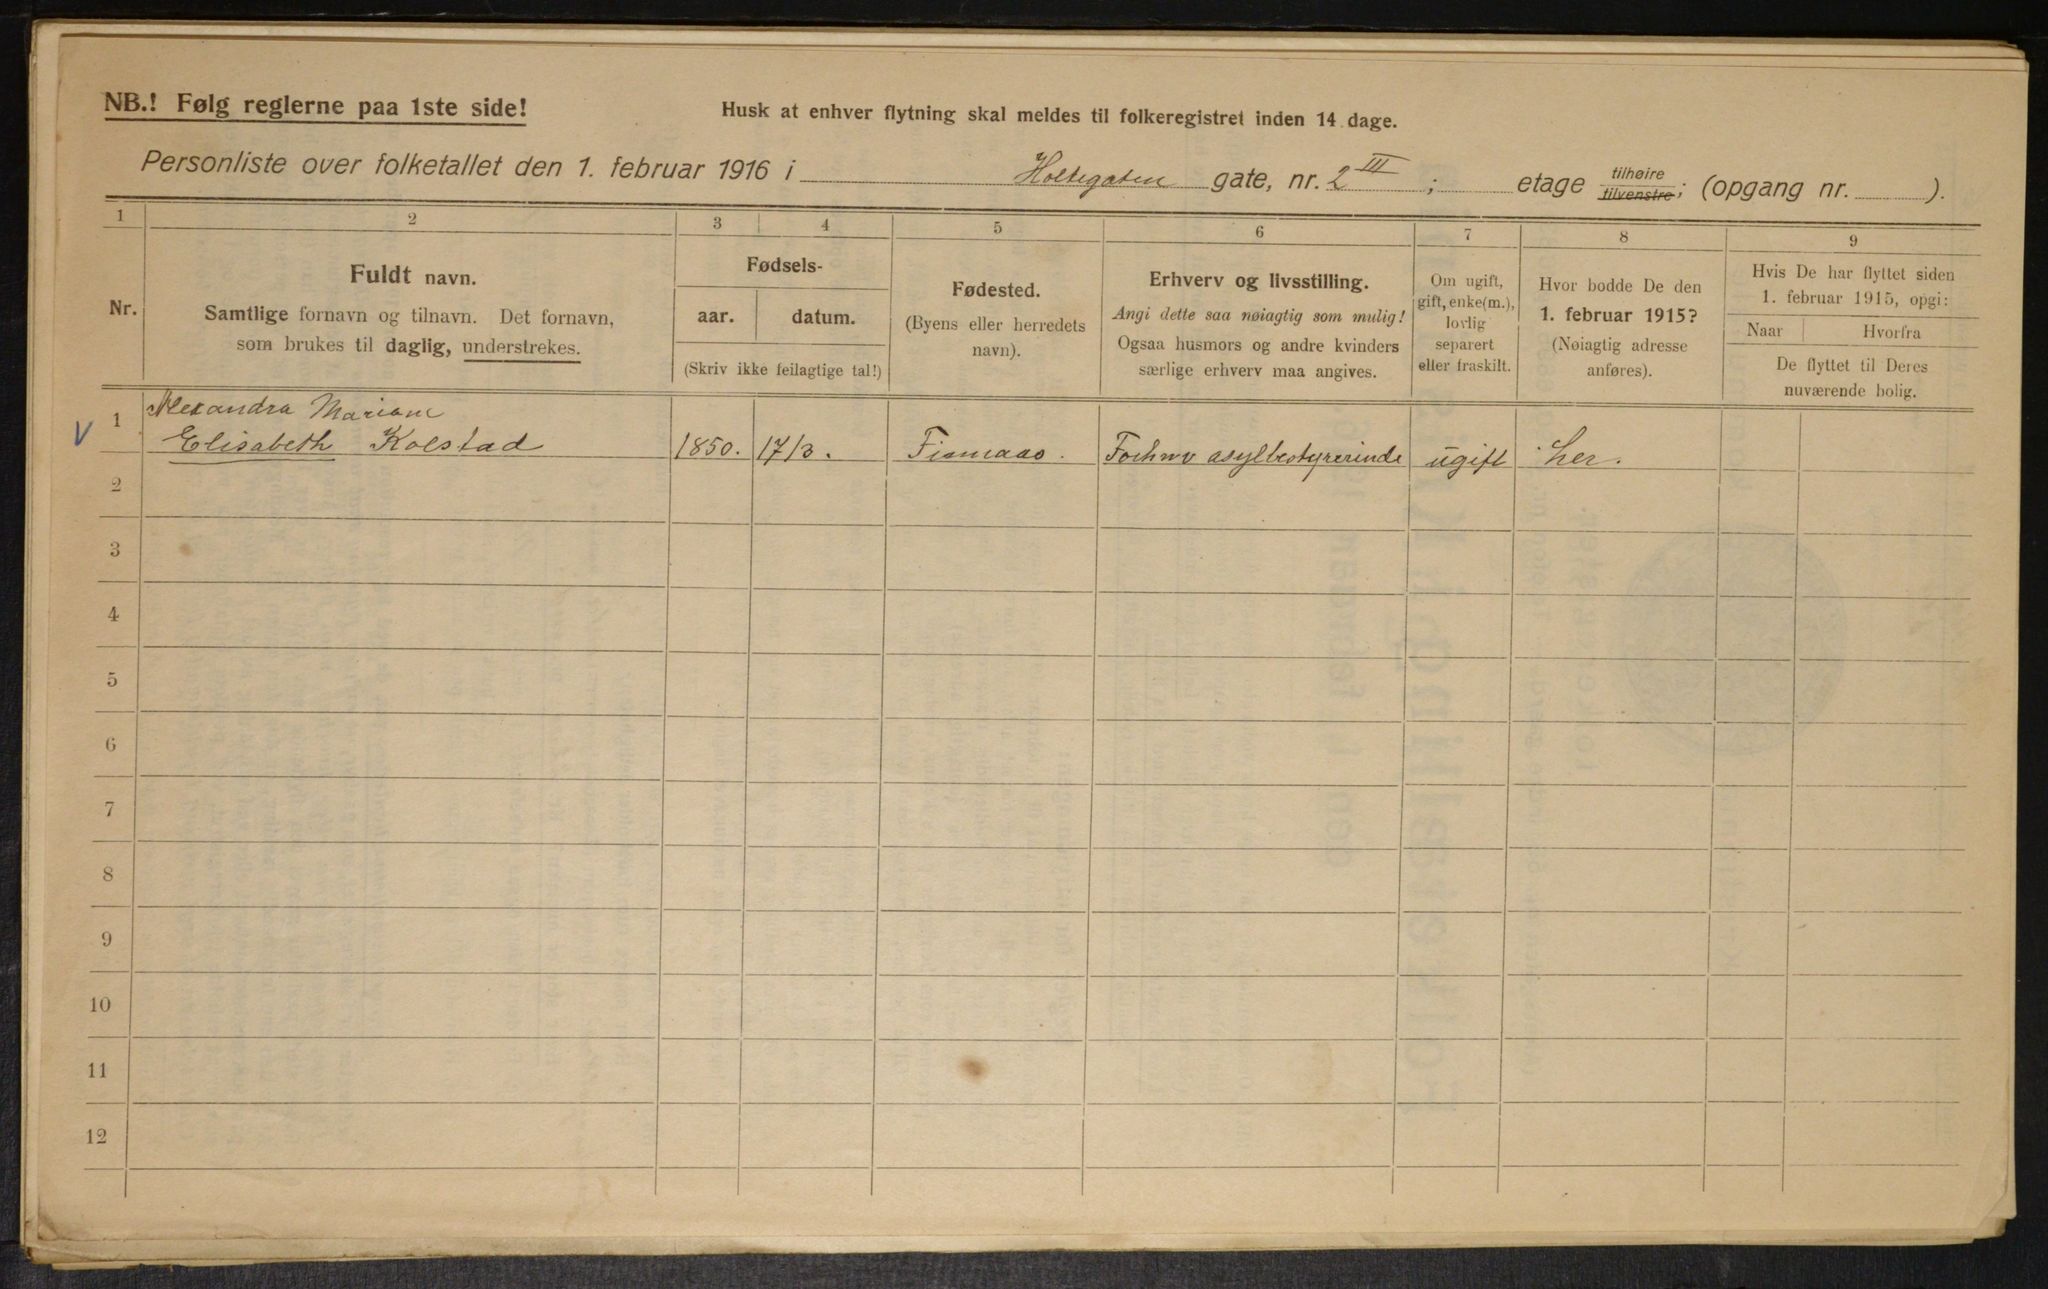 NB.! Følg reglerne paa 1ste side!
Husk at enhver flytning skal meldes til folkeregistret inden 14 dage.
Personliste over folketallet den 1. februar 1916 i Holtegaten gate, nr. 2 III ; etage tilhøire tilvenstre; (opgang nr. ).
1 2 3 4 5 6 7 8 9
Nr.
Fuldt navn.
Samtlige fornavn og tilnavn. Det fornavn,
som brukes til daglig, understrekes.
Fødsels-
aar. datum.
(Skriv ikke feilagtige tal!)
Fødested.
(Byens eller herredets
navn).
Erhverv og livsstilling.
Angi dette saa nøiagtig som mulig!
Ogsaa husmors og andre kvinders
særlige erhverv maa angives.
Om ugift,
gift, enke(m.),
lovlig
separert
eller fraskilt.
Hvor bodde De den
1. februar 1915?
(Nøiagtig adresse
anføres).
Hvis De har flyttet siden
1. februar 1915, opgi:
Naar Hvorfra
De flyttet til Deres
nuværende bolig.
V 1 Alexandra Mariane
Elisabeth Kolstad 1850. 17/3. asylbestyrerinde ugift her.
2
3
4
5
6
7
8
9
10
11
12